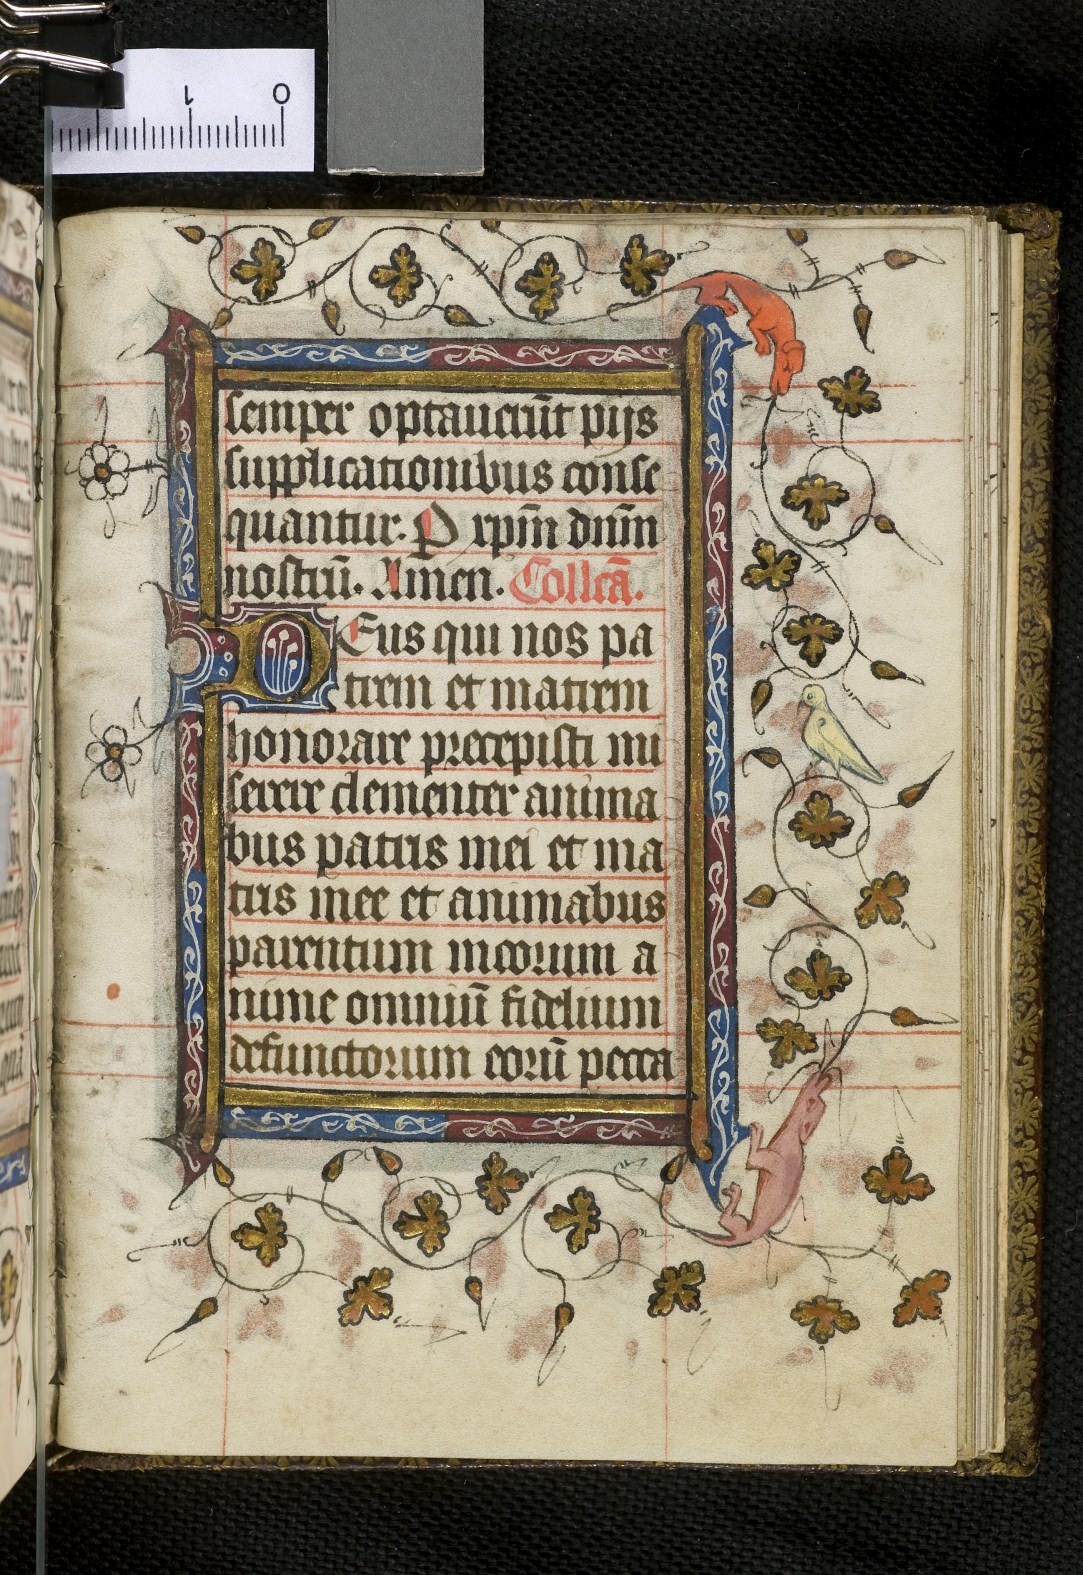 1 0
semper optauerūt pijs
supplicationibus conse
quantur. P xpm̄ dnm̄
nostrū. Amen. Collcā.
DEus qui nos pa
trem et matrem
honorare precepisti mi
serere clementer anima
bus patris mei et ma
tris mee et animabus
parentum meorum a
nime omniū fidelium
defunctorum eorū pecca